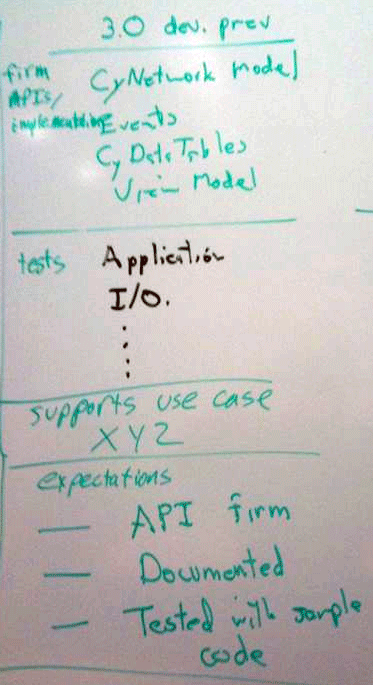 3.0 dev. prev
firm CyNetwork Model
APIs/
implementation Events
CyDataTables
View Model
tests Application
I/O.
supports use case
XYZ
expectations
— API firm
— Documented
— Tested with sample
code